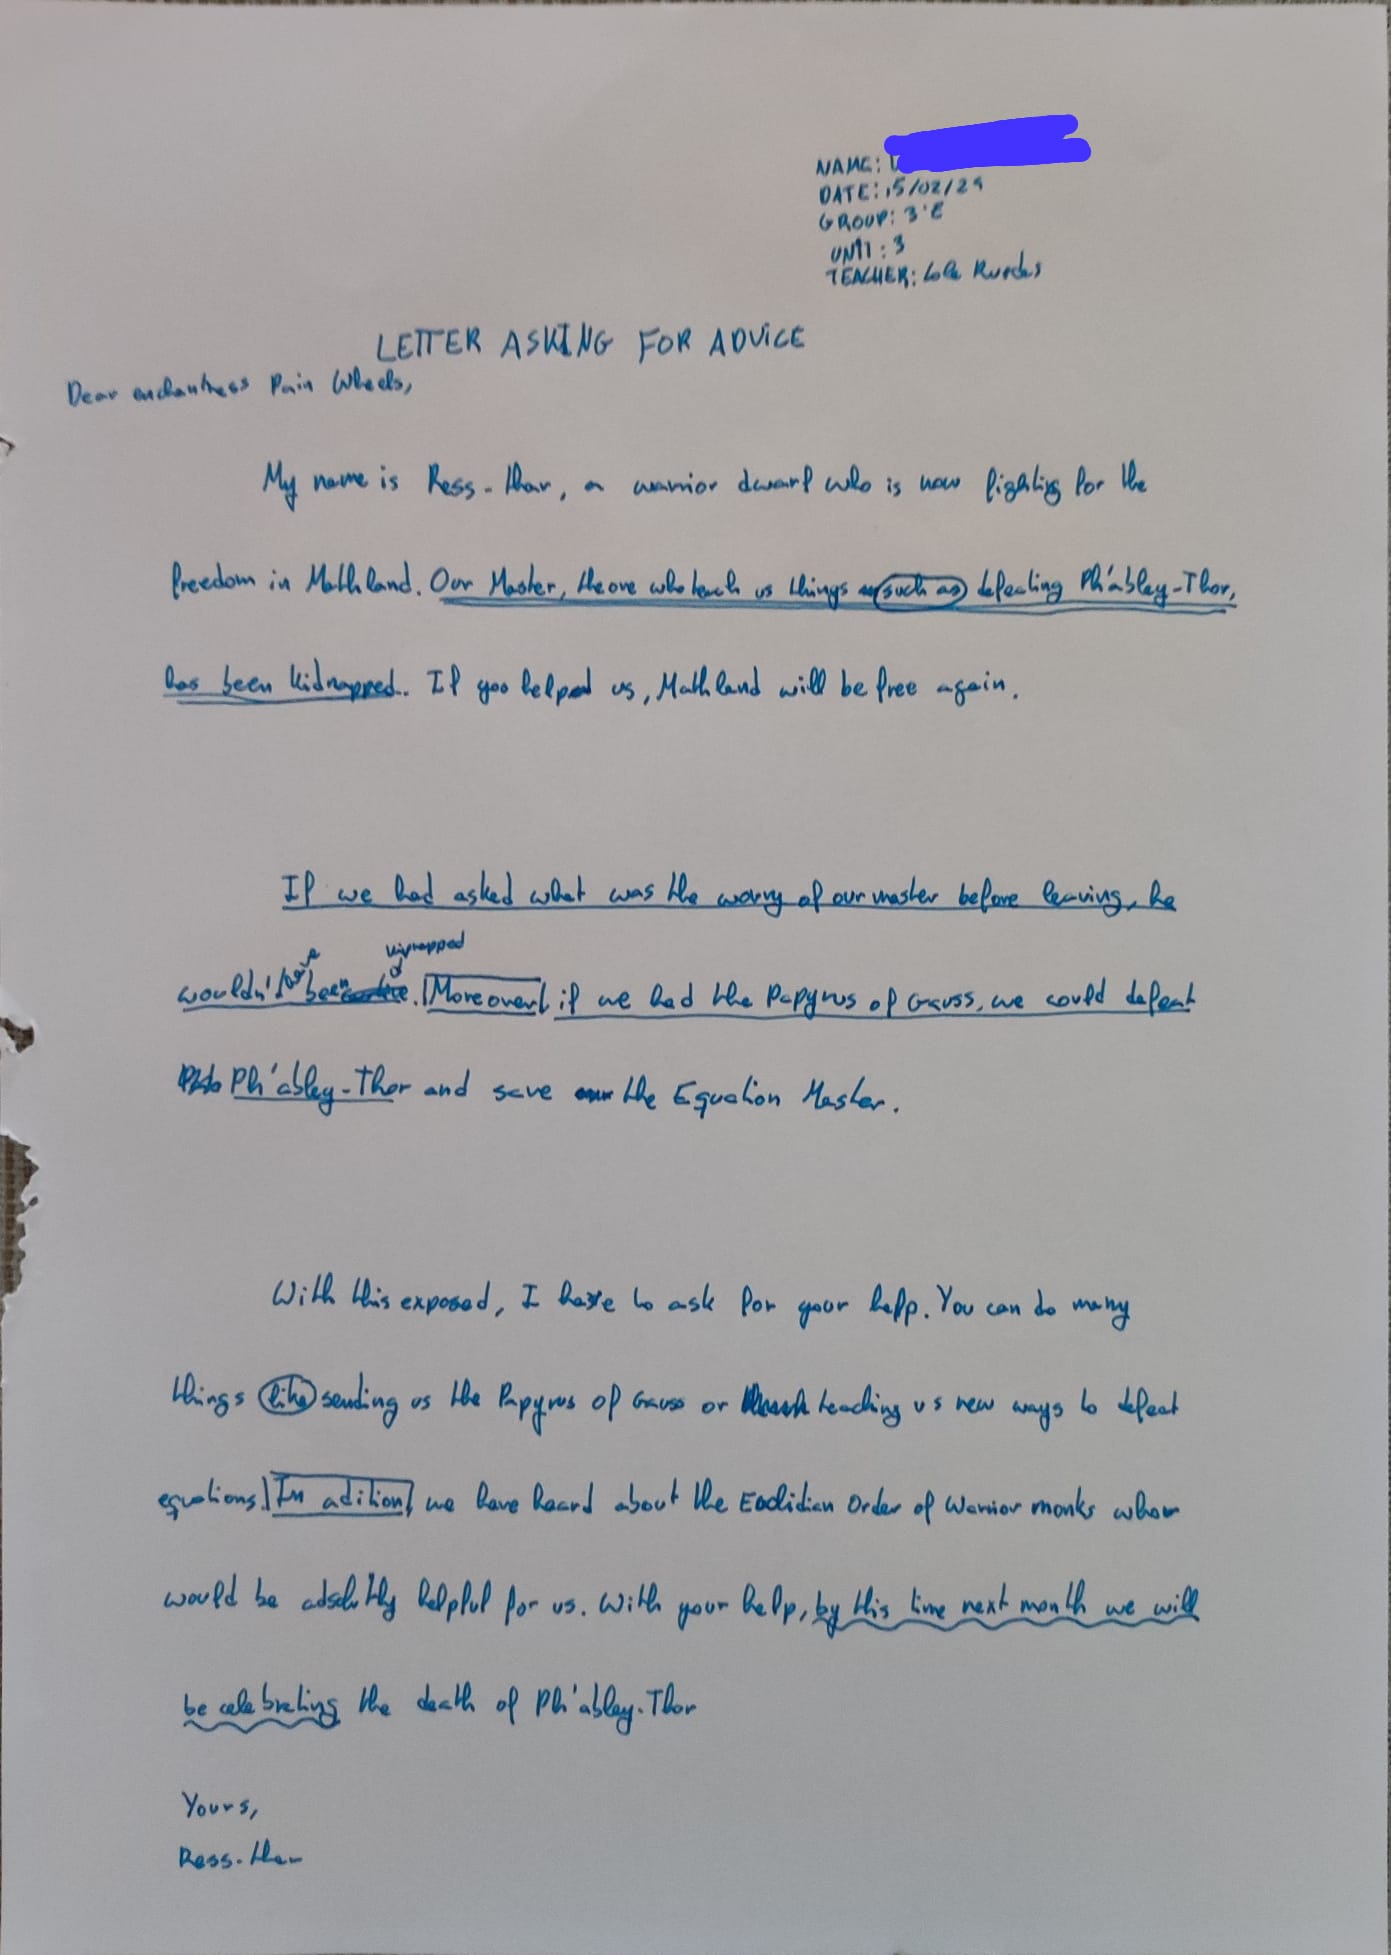 NAME:
DATE: 15/02/24
GROUP: 3ºE
UNIT: 3
TEACHER: Lola Ruedas
LETTER ASKING FOR ADVICE
Dear enchantress Pain Wheels,
My name is Ress-thar, a warrior dwarf who is now fighting for the
freedom in Mathland. Our Master, the one who teach us things such as defeating Ph'abley-Thor,
has been kidnapped. If you helped us, Mathland will be free again.
If we had asked what was the worry of our master before leaving, he
wouldn't have been kignapped. Moreover, if we had the Papyrus of Gauss, we could defeat
Ph'abley-Thor and save the Equation Master.
With this exposed, I have to ask for your help. You can do many
things like sending us the Papyrus of Gauss or teaching us new ways to defeat
equations. In adition, we have heard about the Euclidian Order of Warrior monks whom
would be adsolutly helpful for us. With your help, by this time next month we will
be celebrating the death of Ph'abley-Thor
Yours,
Ress-thar